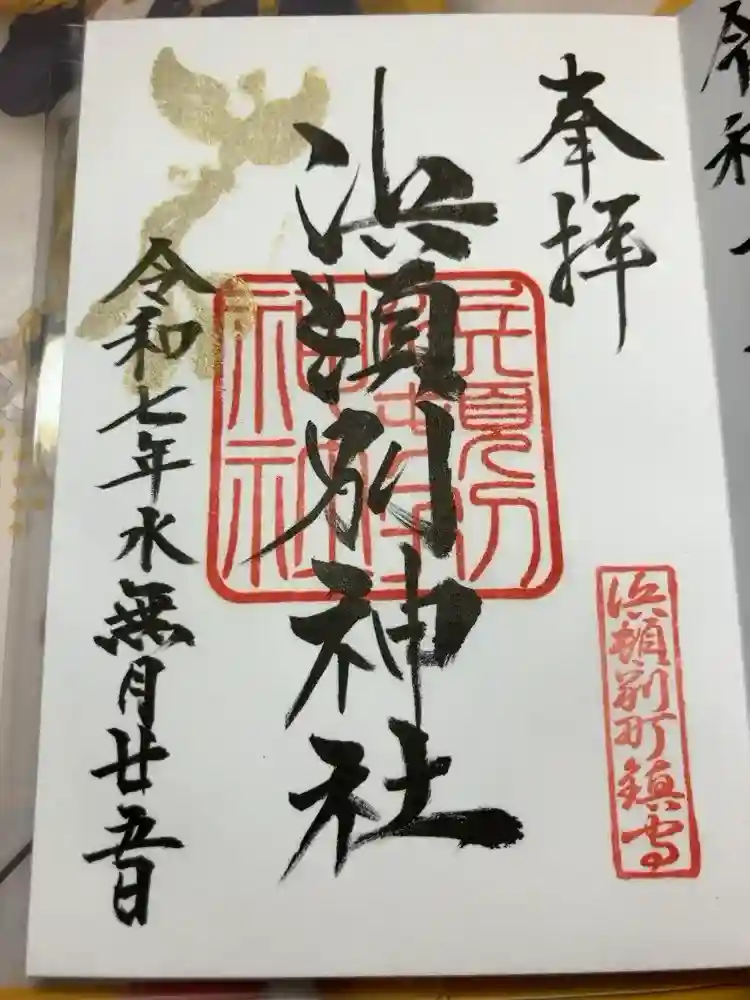 奉拝
浜頓別町鎮守
浜頓別神社
令和七年水無月廿五日